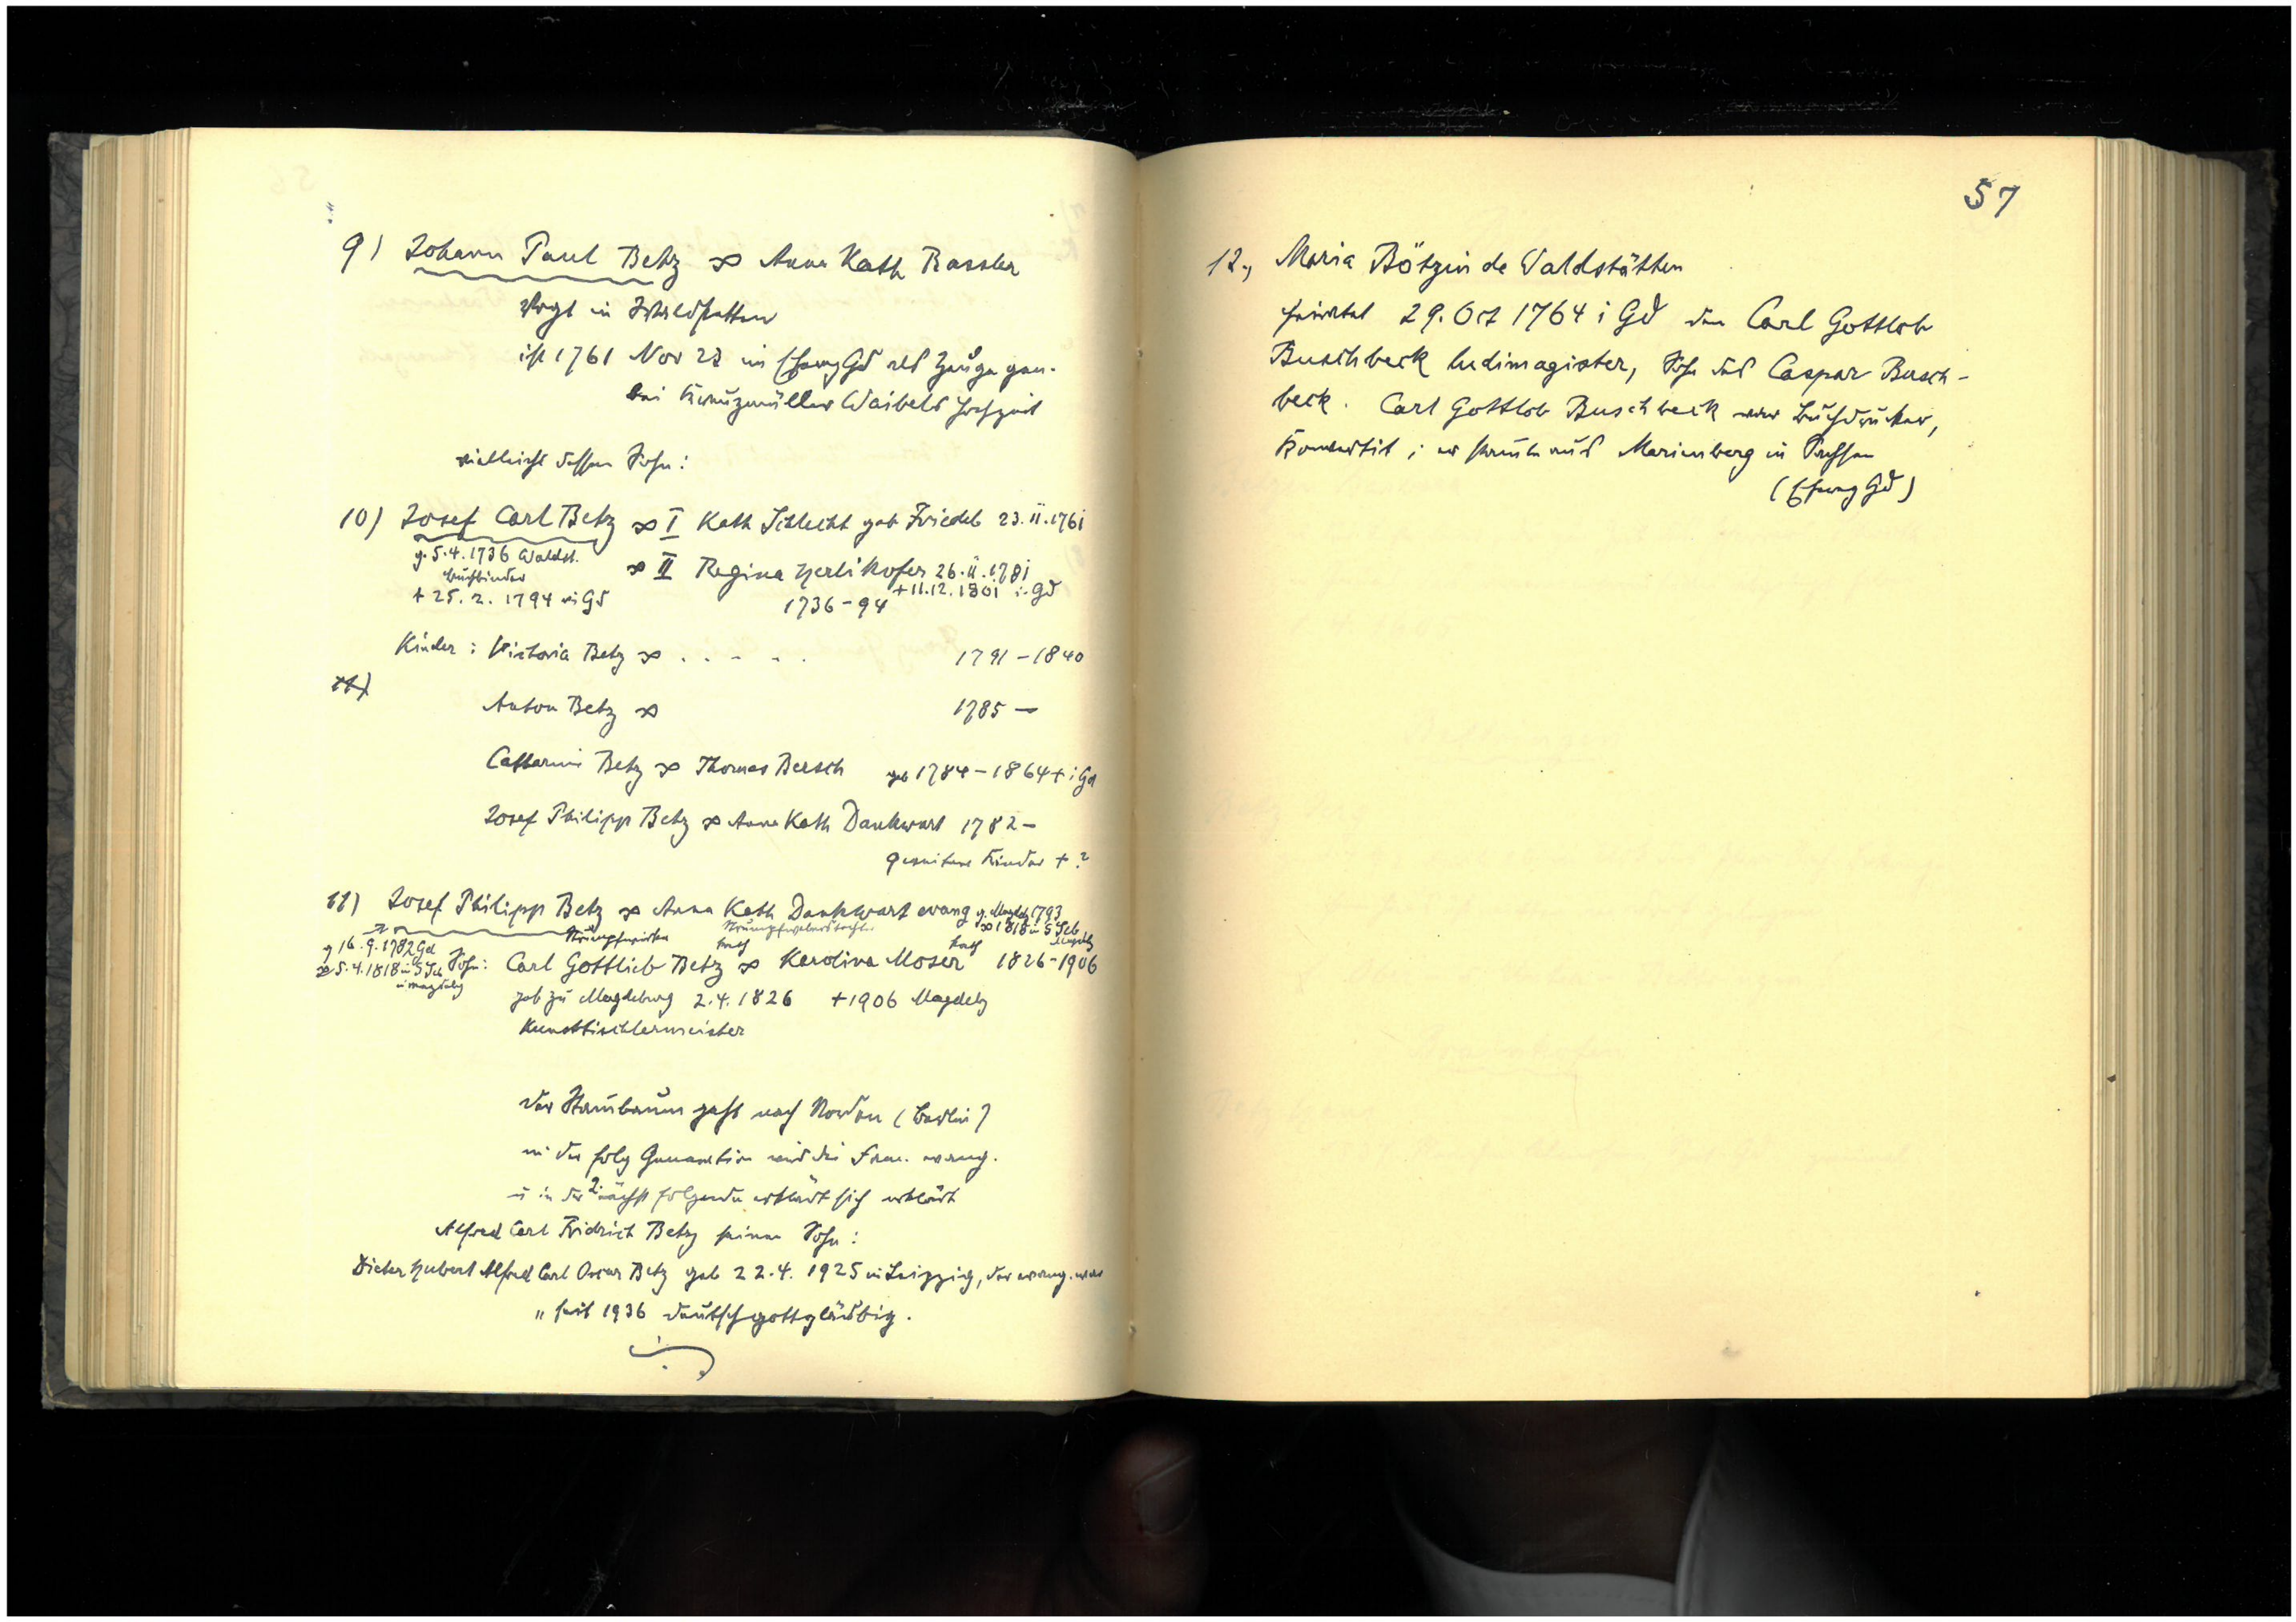 9) Johann Paul Betz ∞ Anna Kath Bassler
Vogt in Waldstetten
ist 1761 Nov 23 im Ehereg Gd als Zeuge gen.
bei Kreuzmüller Waibels Hochzeit
vielleicht dessen Sohn:
10) Josef Carl Betz ∞ I Kath Schlecht geb Friedel 23.II.1761
g. 5.4.1736 Waldst.
Buchbinder
+ 25.2.1794 in Gd
∞ II Regina Herlikofer 26.II.1781
1736-94 +11.12.1801 i. Gd
Kinder: Victoria Betz ∞ . . . . . 1791-1840
11)
Anton Betz ∞ 1785 –
Catharin Betz ∞ Thomas Bersch geb 1784-1864 + i Gd
Josef Philipp Betz ∞ Anna Kath Dankwart 1782 –
Kinder + ?
11) Josef Philipp Betz ∞ Anna Kath Dankwart evang g. Magdeb 1793
Strumpfwirker Strumpfweberstochter ∞ 1818 in
g 16.9.1782 Gd
∞ 5.4.1818 in
in Magdebg
kath kath
Sohn: Carl Gottlieb Betz ∞ Karolina Moser 1826-1906
geb zu Magdeburg 2.4.1826 +1906 Magdebg
Kunsttischlermeister
Der Stambaum geht nach Norden (Berlin)
in der folg Generation wird die Fam. evang.
u in der 2. nächst folgenden erklärt sich erklärt
Alfred Carl Fridrich Betz seinen Sohn:
Dieter Hubert Alfred Carl Oscar Betz geb 22.4.1925 in Leipzig, der evang. war
" seit 1936 deutschgottgläubig.
57
12., Maria Bötzin de Waldstätten
heiratet 29. Oct 1764 i Gd den Carl Gottlob
Buschbeck ludimagister, Sohn des Caspar Busch-
beck. Carl Gottlob Buschbeck war Buchdrucker,
Konvertit; er stamte aus Marienberg in Sachsen
(Ehereg Gd)